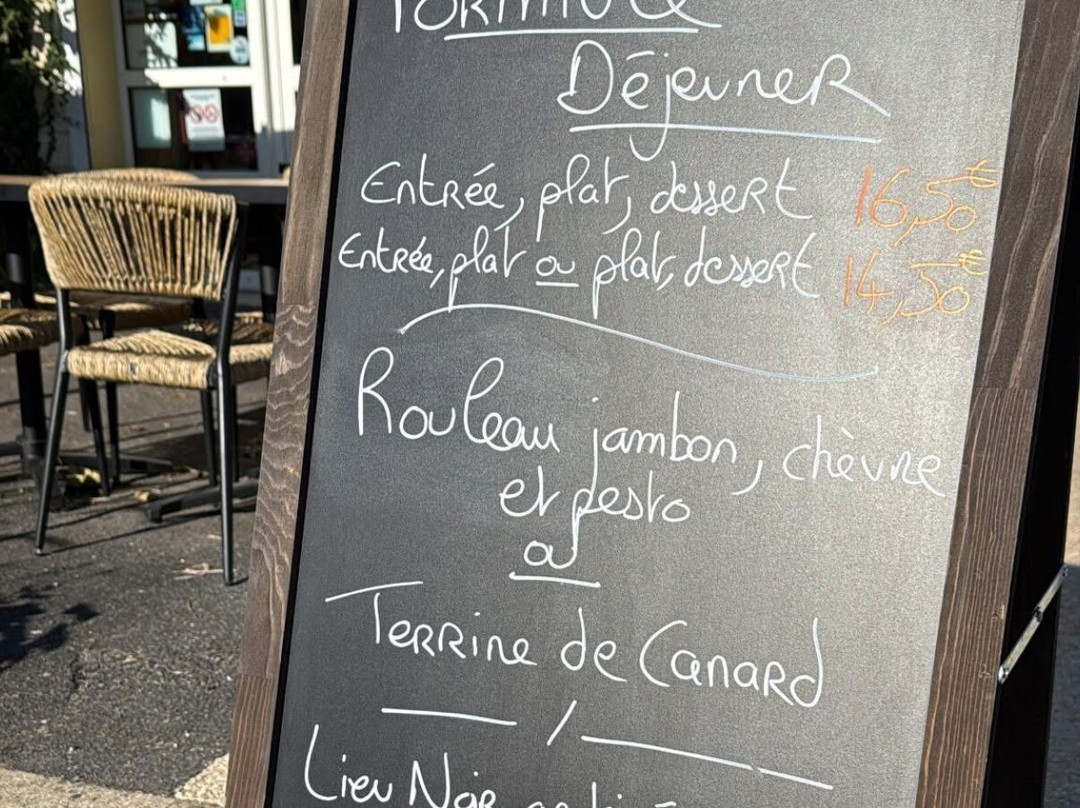 Formule
Déjeuner
Entrée, plat, dessert 16,50€
Entrée, plat ou plat, dessert 14,50€
Rouleau jambon, chèvre
et pesto
ou
Terrine de Canard
/
Lieu Noir